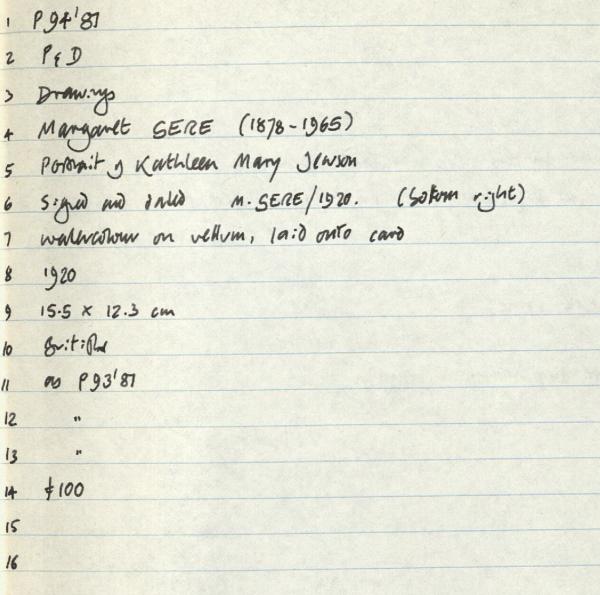 1 P94'87
2 P & D
3 Drawings
4 Margaret SERE (1878-1965)
5 Portrait of Kathleen Mary Jewson
6 Signed and dated M. SERE/1920. (bottom right)
7 watercolour on vellum, laid onto card
8 1920
9 15.5 x 12.3 cm
10 British
11 as P93'87
12 "
13 "
14 £100
15
16